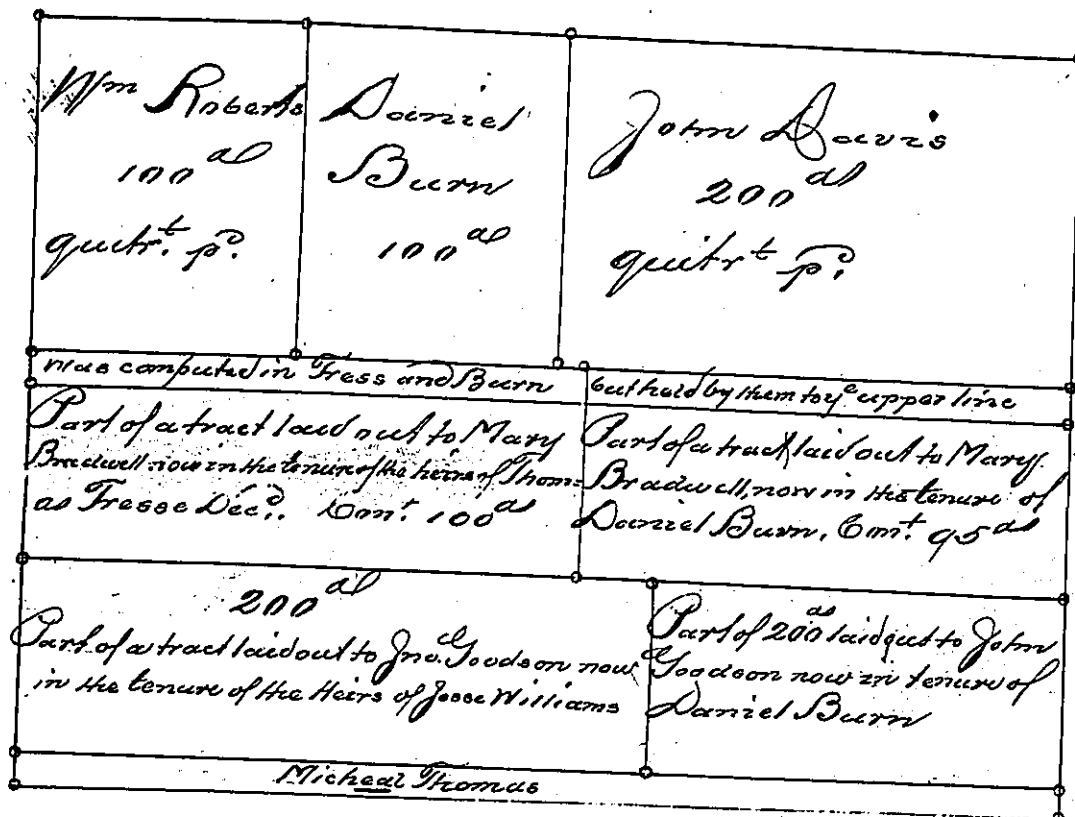 Wm Roberts
100 as
quitr.t pd.
Daniel
Burn
100 as
John Davis
200 as
quitr t pd.
was computed in Fress and Burn but held by them to ye upper line
Part of a tract laid out to Mary
Bradwell now in the tenure of the heirs of Thom-
as Fresse Decd. Cont. 100 as
Part of a tract laid out to Mary
Bradwell, now in the tenure of
Daniel Burn, Cont. 95 as
200 as
Part of a tract laid out to Jno. Goodson now
in the tenure of the Heirs of Jesse Williams
Part of 200 as laid out to John
Goodson now in tenure of
Daniel Burn
Micheal Thomas